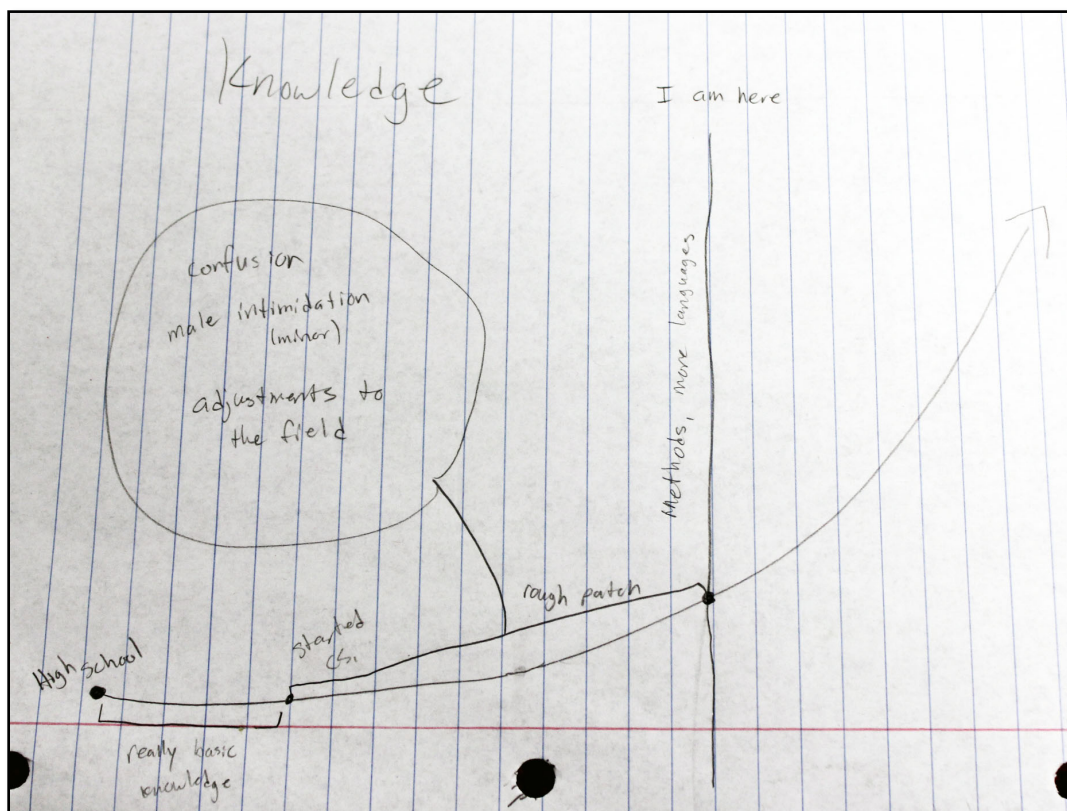 Knowledge
I am here
confusion
male intimidation
(minor)
adjustments to
the field
Methods, more languages
rough patch
started
CS.
High school
really basic
knowledge